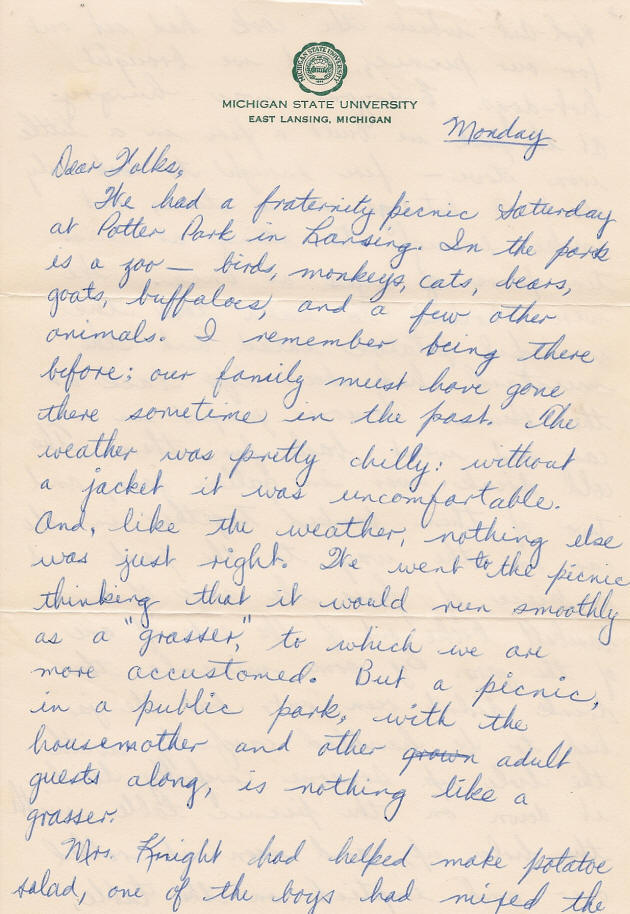 MICHIGAN STATE UNIVERSITY
MICHIGAN STATE UNIVERSITY
EAST LANSING, MICHIGAN
Monday
Dear Folks,
We had a fraternity picnic Saturday
at Potter Park in Lansing. In the park
is a zoo — birds, monkeys, cats, bears,
goats, buffaloes, and a few other
animals. I remember being there
before; our family must have gone
there sometime in the past. The
weather was pretty chilly; without
a jacket it was uncomfortable.
And, like the weather, nothing else
was just right. We went to the picnic
thinking that it would run smoothly
as a "grasser," to which we are
more accustomed. But a picnic,
in a public park, with the
housemother and other grown adult
guests along, is nothing like a
grasser.
Mrs. Knight had helped make potatoe
salad, one of the boys had mixed the